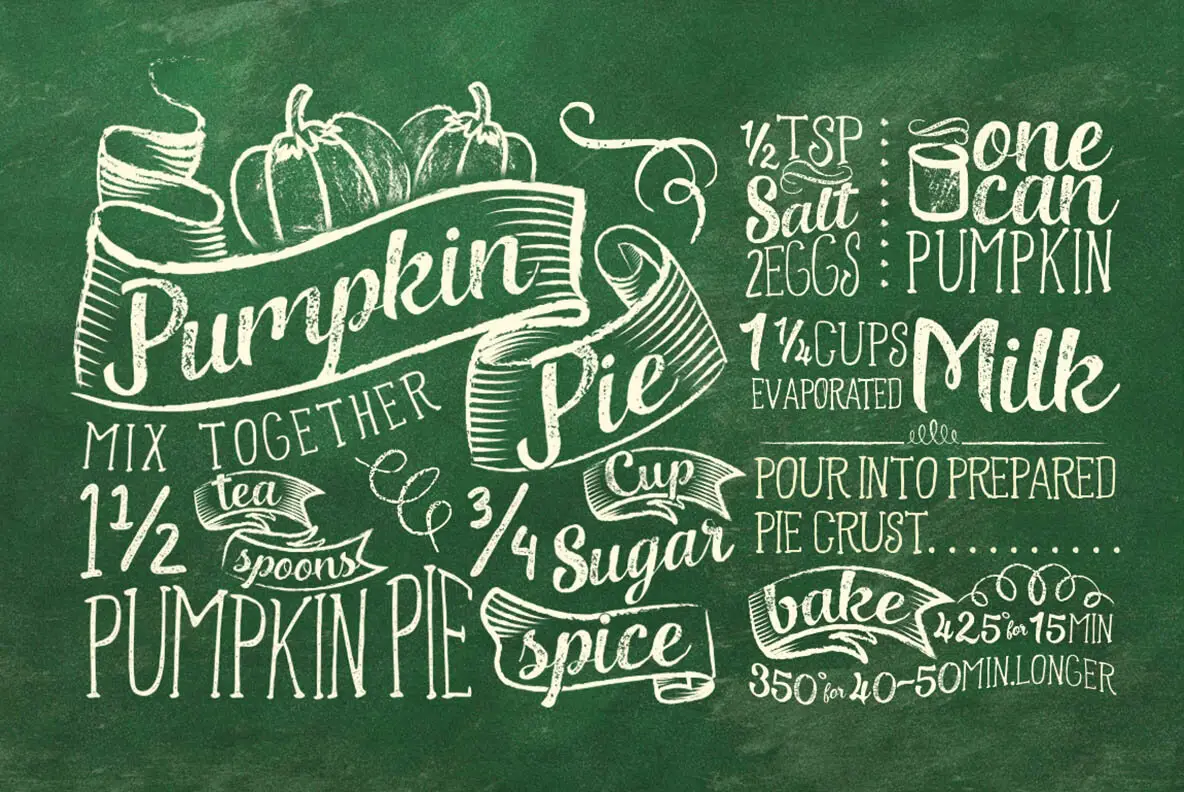 Pumpkin
Pie
MIX TOGETHER
1 1/2 tea spoons
PUMPKIN PIE spice
3/4 Cup Sugar
1/2 TSP
Salt
2 EGGS
one
can
PUMPKIN
1 1/4 CUPS
EVAPORATED
Milk
POUR INTO PREPARED
PIE CRUST..........
bake 425° for 15 MIN
350° for 40~50 MIN. LONGER